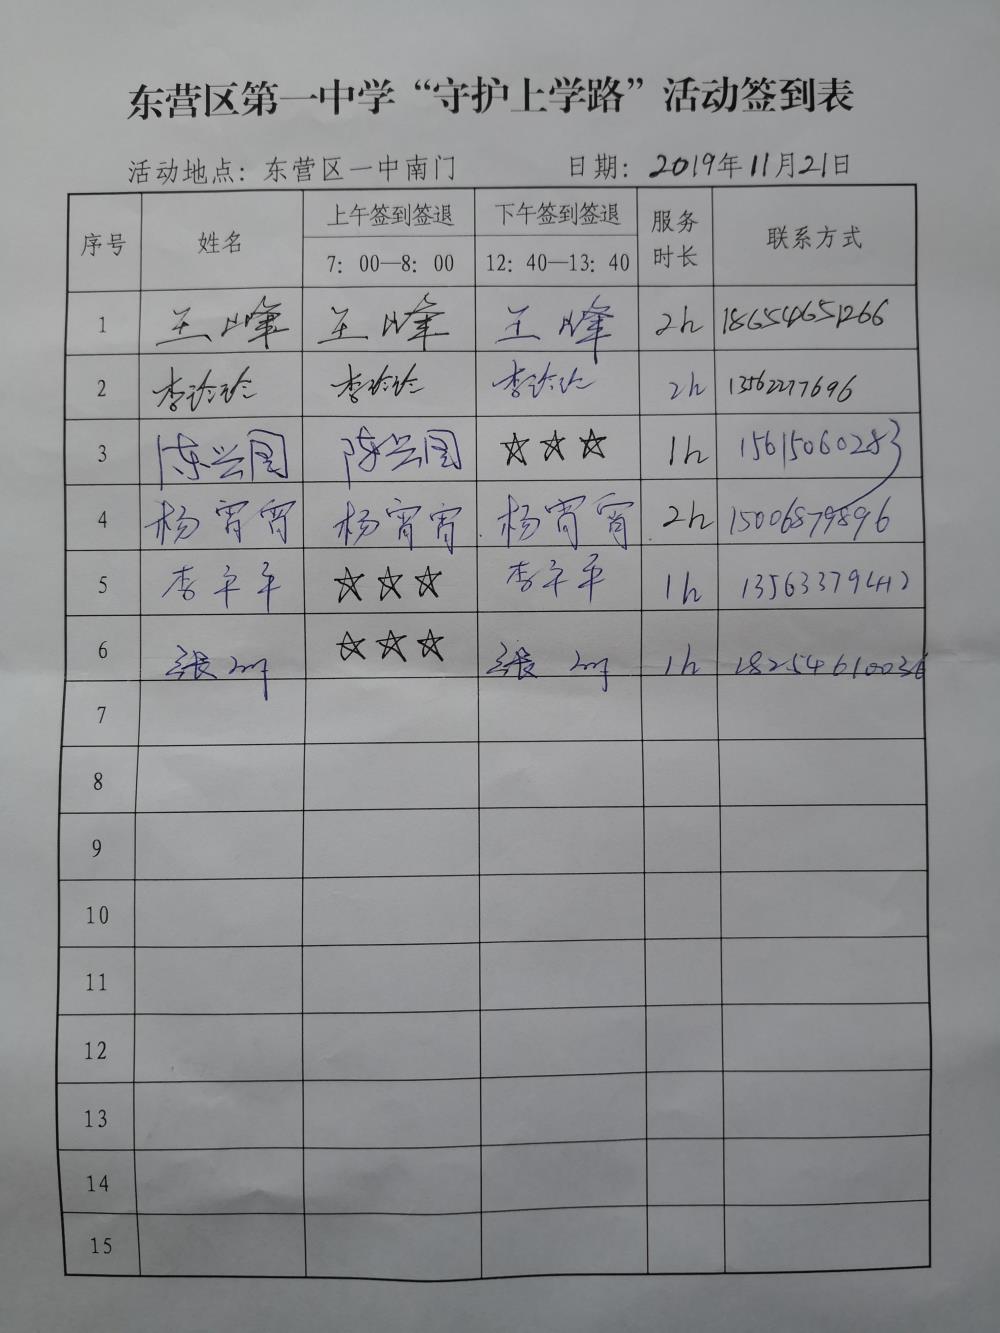 东营区第一中学“守护上学路”活动签到表
活动地点：东营区一中南门 日期：2019年11月21日
序号 姓名 上午签到签退 下午签到签退 服务时长 联系方式
7：00—8：00 12：40—13：40
1 王峰 王峰 王峰 2h 18654651266
2 李珍珍 李珍珍 李珍珍 2h 13562277696
3 陈兴国 陈兴国 ☆☆☆ 1h 15615060283
4 杨宵宵 杨宵宵 杨宵宵 2h 15006879896
5 李平平 ☆☆☆ 李平平 1h
6 ☆☆☆ 1h 18254610036
7
8
9
10
11
12
13
14
15